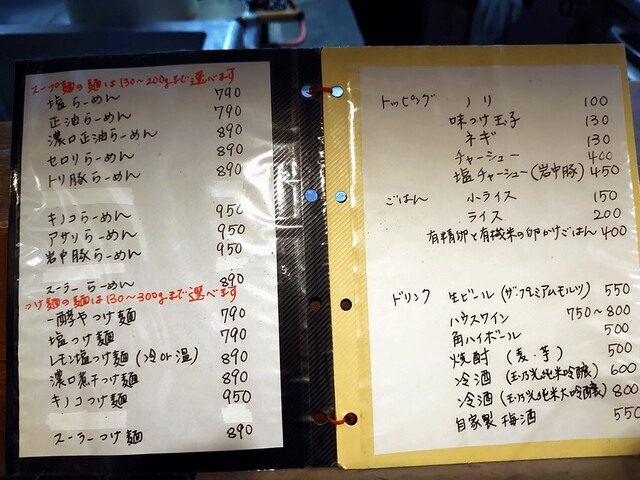 スープ麺の麺は130〜200gまで選べます
塩らーめん 790
正油らーめん 790
濃口正油らーめん 890
セロリらーめん 890
トリ豚らーめん 890
キノコらーめん 950
アサリらーめん 950
岩中豚らーめん 950
スーラーらーめん 890
つけ麺の麺は130〜300gまで選べます
一酵やつけ麺 790
塩つけ麺 790
レモン塩つけ麺(冷or温) 890
濃口煮干つけ麺 890
キノコつけ麺 950
スーラーつけ麺 890
トッピング ノリ 100
味つけ玉子 130
ネギ 130
チャーシュー 400
塩チャーシュー(岩中豚) 450
ごはん 小ライス 150
ライス 200
有精卵と有機米の卵かけごはん 400
ドリンク 生ビール(ザ・プレミアムモルツ) 550
ハウスワイン 750〜800
角ハイボール 500
焼酎(麦・芋) 500
冷酒(玉乃光純米吟醸) 600
冷酒(玉乃光純米大吟醸) 800
自家製梅酒 550